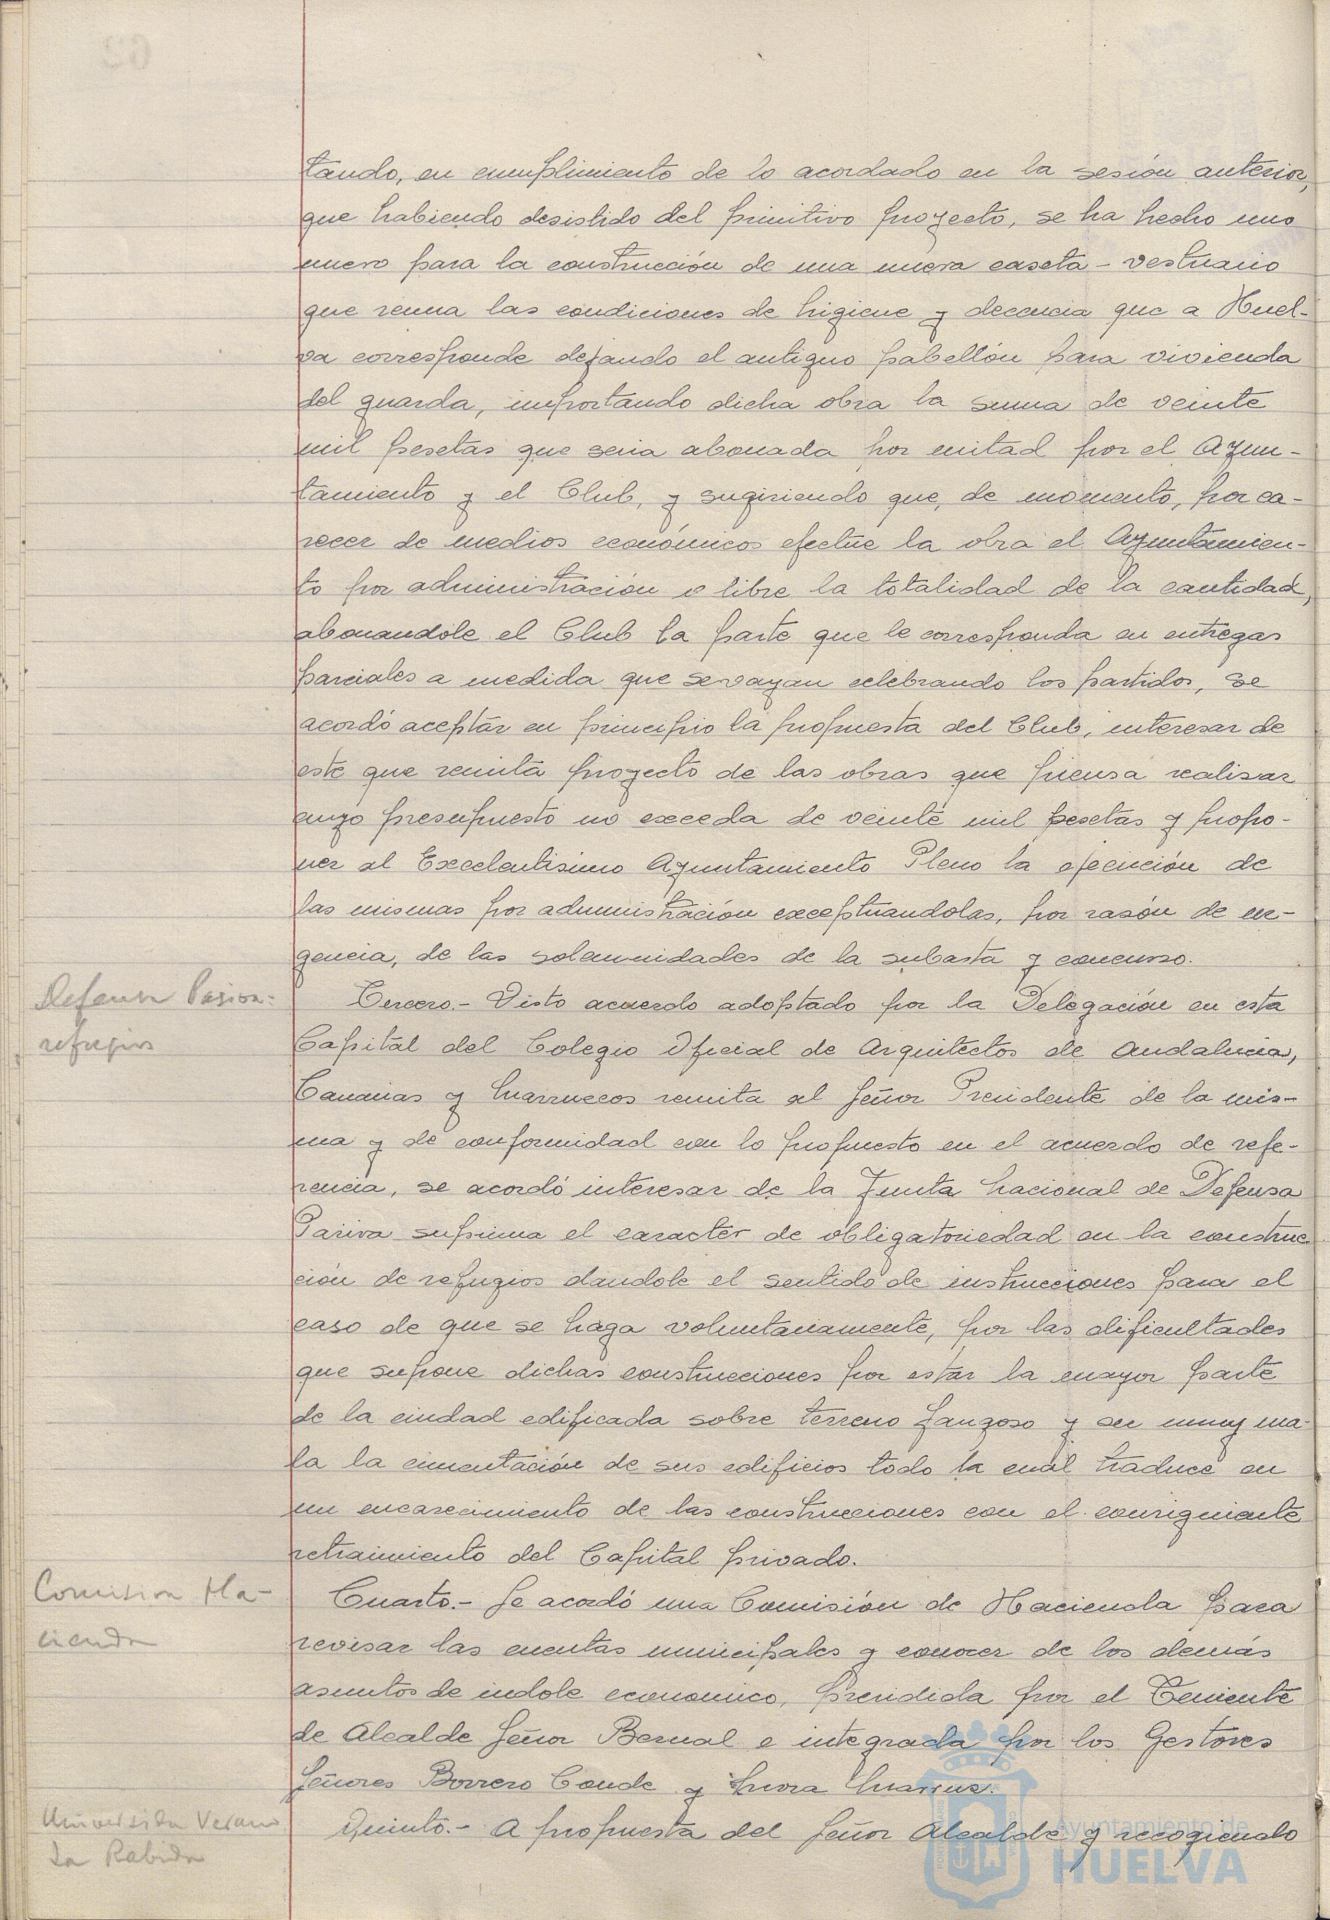 tando, en cumplimiento de lo acordado en la sesión anterior,
que habiendo desistido del primitivo proyecto, se ha hecho uno
nuevo para la construcción de una nueva caseta - vestuario
que reuna las condiciones de higiene y decencia que a Huel-
va corresponde dejando el antiguo pabellón para vivienda
del guarda, importando dicha obra la suma de veinte
mil pesetas que seria abonada por mitad por el Ayun-
tamiento y el Club, y sugiriendo que, de momento, por ca-
recer de medios económicos efectúe la obra el Ayuntamien-
to por administración o libre la totalidad de la cantidad,
abonandole el Club la parte que le corresponda en entregas
parciales a medida que se vayan celebrando los partidos, se
acordó aceptar en principio la propuesta del Club, interesar de
este que remita proyecto de las obras que piensa realizar
cuyo presupuesto no exceda de veinte mil pesetas y propo-
ner al Excelentisimo Ayuntamiento Pleno la ejecución de
las mismas por administración exceptuandolas, por razón de ur-
gencia, de las solemnidades de la subasta y concurso.
Defensa Pasiva:
refugios
Tercero.- Visto acuerdo adoptado por la Delegación en esta
Capital del Colegio Oficial de Arquitectos de Andalucia,
Canarias y Marruecos remita al Señor Presidente de la mis-
ma y de conformidad con lo propuesto en el acuerdo de refe-
rencia, se acordó interesar de la Junta Nacional de Defensa
Pasiva suprima el caracter de obligatoriedad en la construc-
ción de refugios dandole el sentido de instrucciones para el
caso de que se haga voluntariamente, por las dificultades
que supone dichas construcciones por estar la mayor parte
de la ciudad edificada sobre terreno fangoso y ser muy ma-
la la cimentación de sus edificios todo la cual traduce en
un encarecimiento de las construcciones con el consiguiente
retraimiento del Capital privado.
Comision Ha-
cienda
Cuarto.- Se acordó una Comisión de Hacienda para
revisar las cuentas municipales y conocer de los demás
asuntos de indole economico, presidida por el Teniente
de Alcalde Señor Bernal e integrada por los Gestores
Señores Borrero Conde y Mora
Universidad Verano
La Rabida
Quinto.- A propuesta del Señor Alcalde y recogiendo
Ayuntamiento de
HUELVA